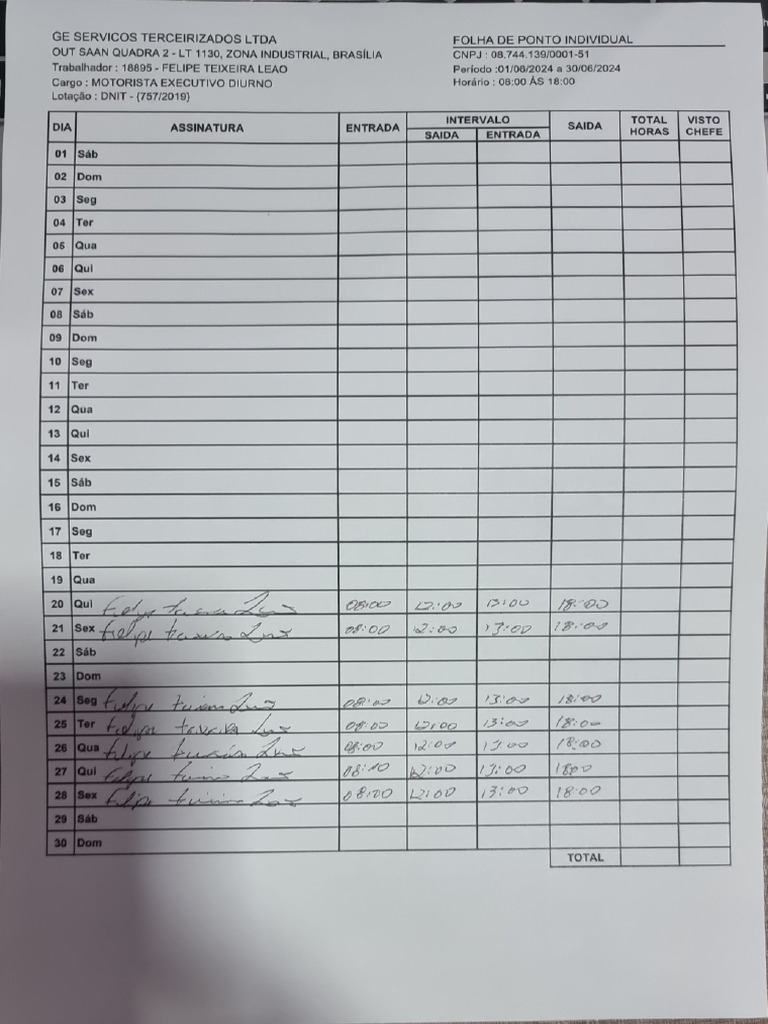 GE SERVICOS TERCEIRIZADOS LTDA
OUT SAAN QUADRA 2 - LT 1130, ZONA INDUSTRIAL, BRASÍLIA
Trabalhador : 18895 - FELIPE TEIXEIRA LEAO
Cargo : MOTORISTA EXECUTIVO DIURNO
Lotação : DNIT - (757/2019)
FOLHA DE PONTO INDIVIDUAL
CNPJ : 08.744.139/0001-51
Período :01/06/2024 a 30/06/2024
Horário : 08:00 ÀS 18:00
DIA ASSINATURA ENTRADA INTERVALO SAIDA ENTRADA SAIDA TOTAL HORAS VISTO CHEFE
01 Sáb
02 Dom
03 Seg
04 Ter
05 Qua
06 Qui
07 Sex
08 Sáb
09 Dom
10 Seg
11 Ter
12 Qua
13 Qui
14 Sex
15 Sáb
16 Dom
17 Seg
18 Ter
19 Qua
20 Qui 08:00 12:00 13:00 18:00
21 Sex Felipe 08:00 12:00 13:00 18:00
22 Sáb
23 Dom
24 Seg Felipe 08:00 12:00 13:00 18:00
25 Ter Felipe 08:00 12:00 13:00 18:00
26 Qua Felipe 08:00 12:00 13:00 18:00
27 Qui Felipe 12:00 13:00 1800
28 Sex Felipe 08:00 12:00 13:00 18:00
29 Sáb
30 Dom
TOTAL